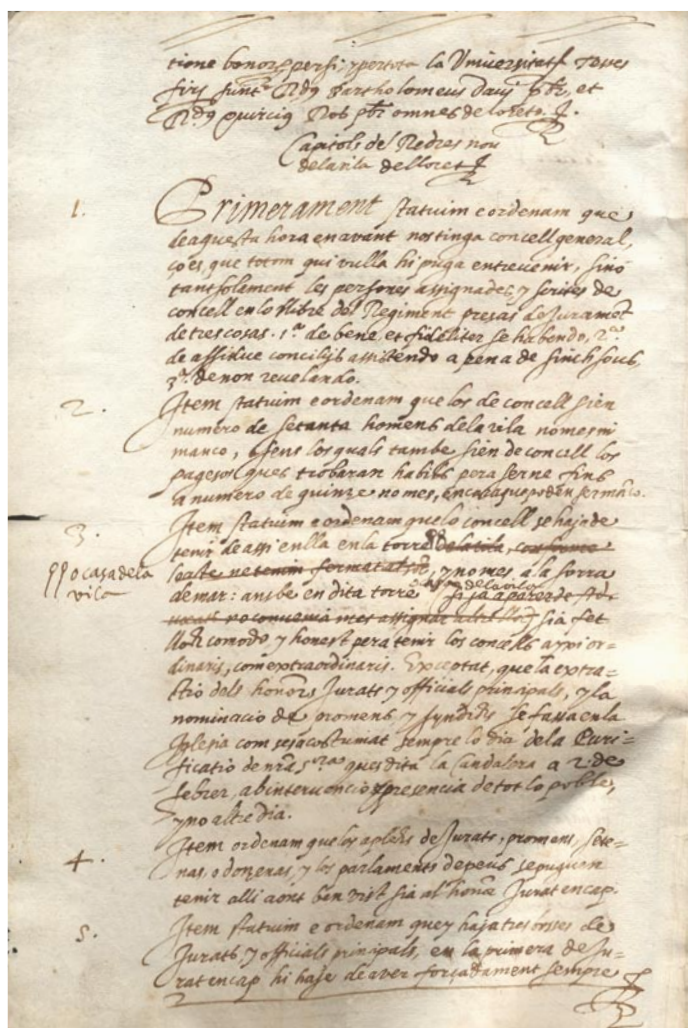 tione bonorp persi, y pertota la Universitat Testes
firs sunt Rdus Bartholomeus Daui pbr, et
Rdus quircius Ros pbr omnes de loreto.
Capitols del Redres nou
delavila delloret
1. Primerament statuim e ordenam que
deaquesta hora en avant nostinga concell general,
ço es, que totom qui vulla hi puga entrevenir, sino
tantsolament les persones assignades, y scrites de
concell en lo llibre del Regiment presas de Jurament
de tres cosas. 1º de bene, et fideliter se habendo, 2º
de assidue concilijs assistendo a pena de sinch sous,
3º de non revelando.
2. Item statuim e ordenam que los de concell sien
numero de setanta homens de la vila nomes ni
manco, sens los quals tambe sien de concell los
pagesos ques trobaran habils pera serne fins
a numero de quinze nomes, encasquepoden ser manco.
3. Item statuim e ordenam quelo concell sehajade
tenir deassi enlla en la torre de la vila, conforme
ppo casa dela
vila
y nomes á la sorra
demar: ans be en dita torre
o casa de la vila
sia fet
lloch comodo y honest pera tenir los concells axxi or=
dinaris, com extraordinaris. Exceptat, que la extra=
ctio dels honors Jurats y officials principals, y la
nominacio de promens y syndichs se fassa en la
Iglesia com sesacostumat sempre lo dia dela Puri=
ficatio de nra sra ques dita la Candalera a 2. de
febrer, ab intervencio y presencia de tot lo poble,
y no altre dia.
4. Item ordenam que los aplechs de Jurats, promens, sete=
nas, o dozenas, y los parlaments depeus sepuguen
tenir alli aont ben vist sia al honor Jurat en cap.
5. Item statuim e ordenam quey haja tres bosses de
Jurats y officials principals, en la primera de Ju=
rat encap hi haje de aver forçadament sempre